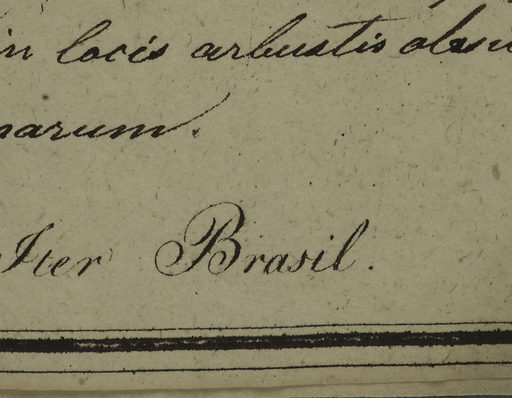 in locis arbustis obsi
narum.
Iter Brasil.